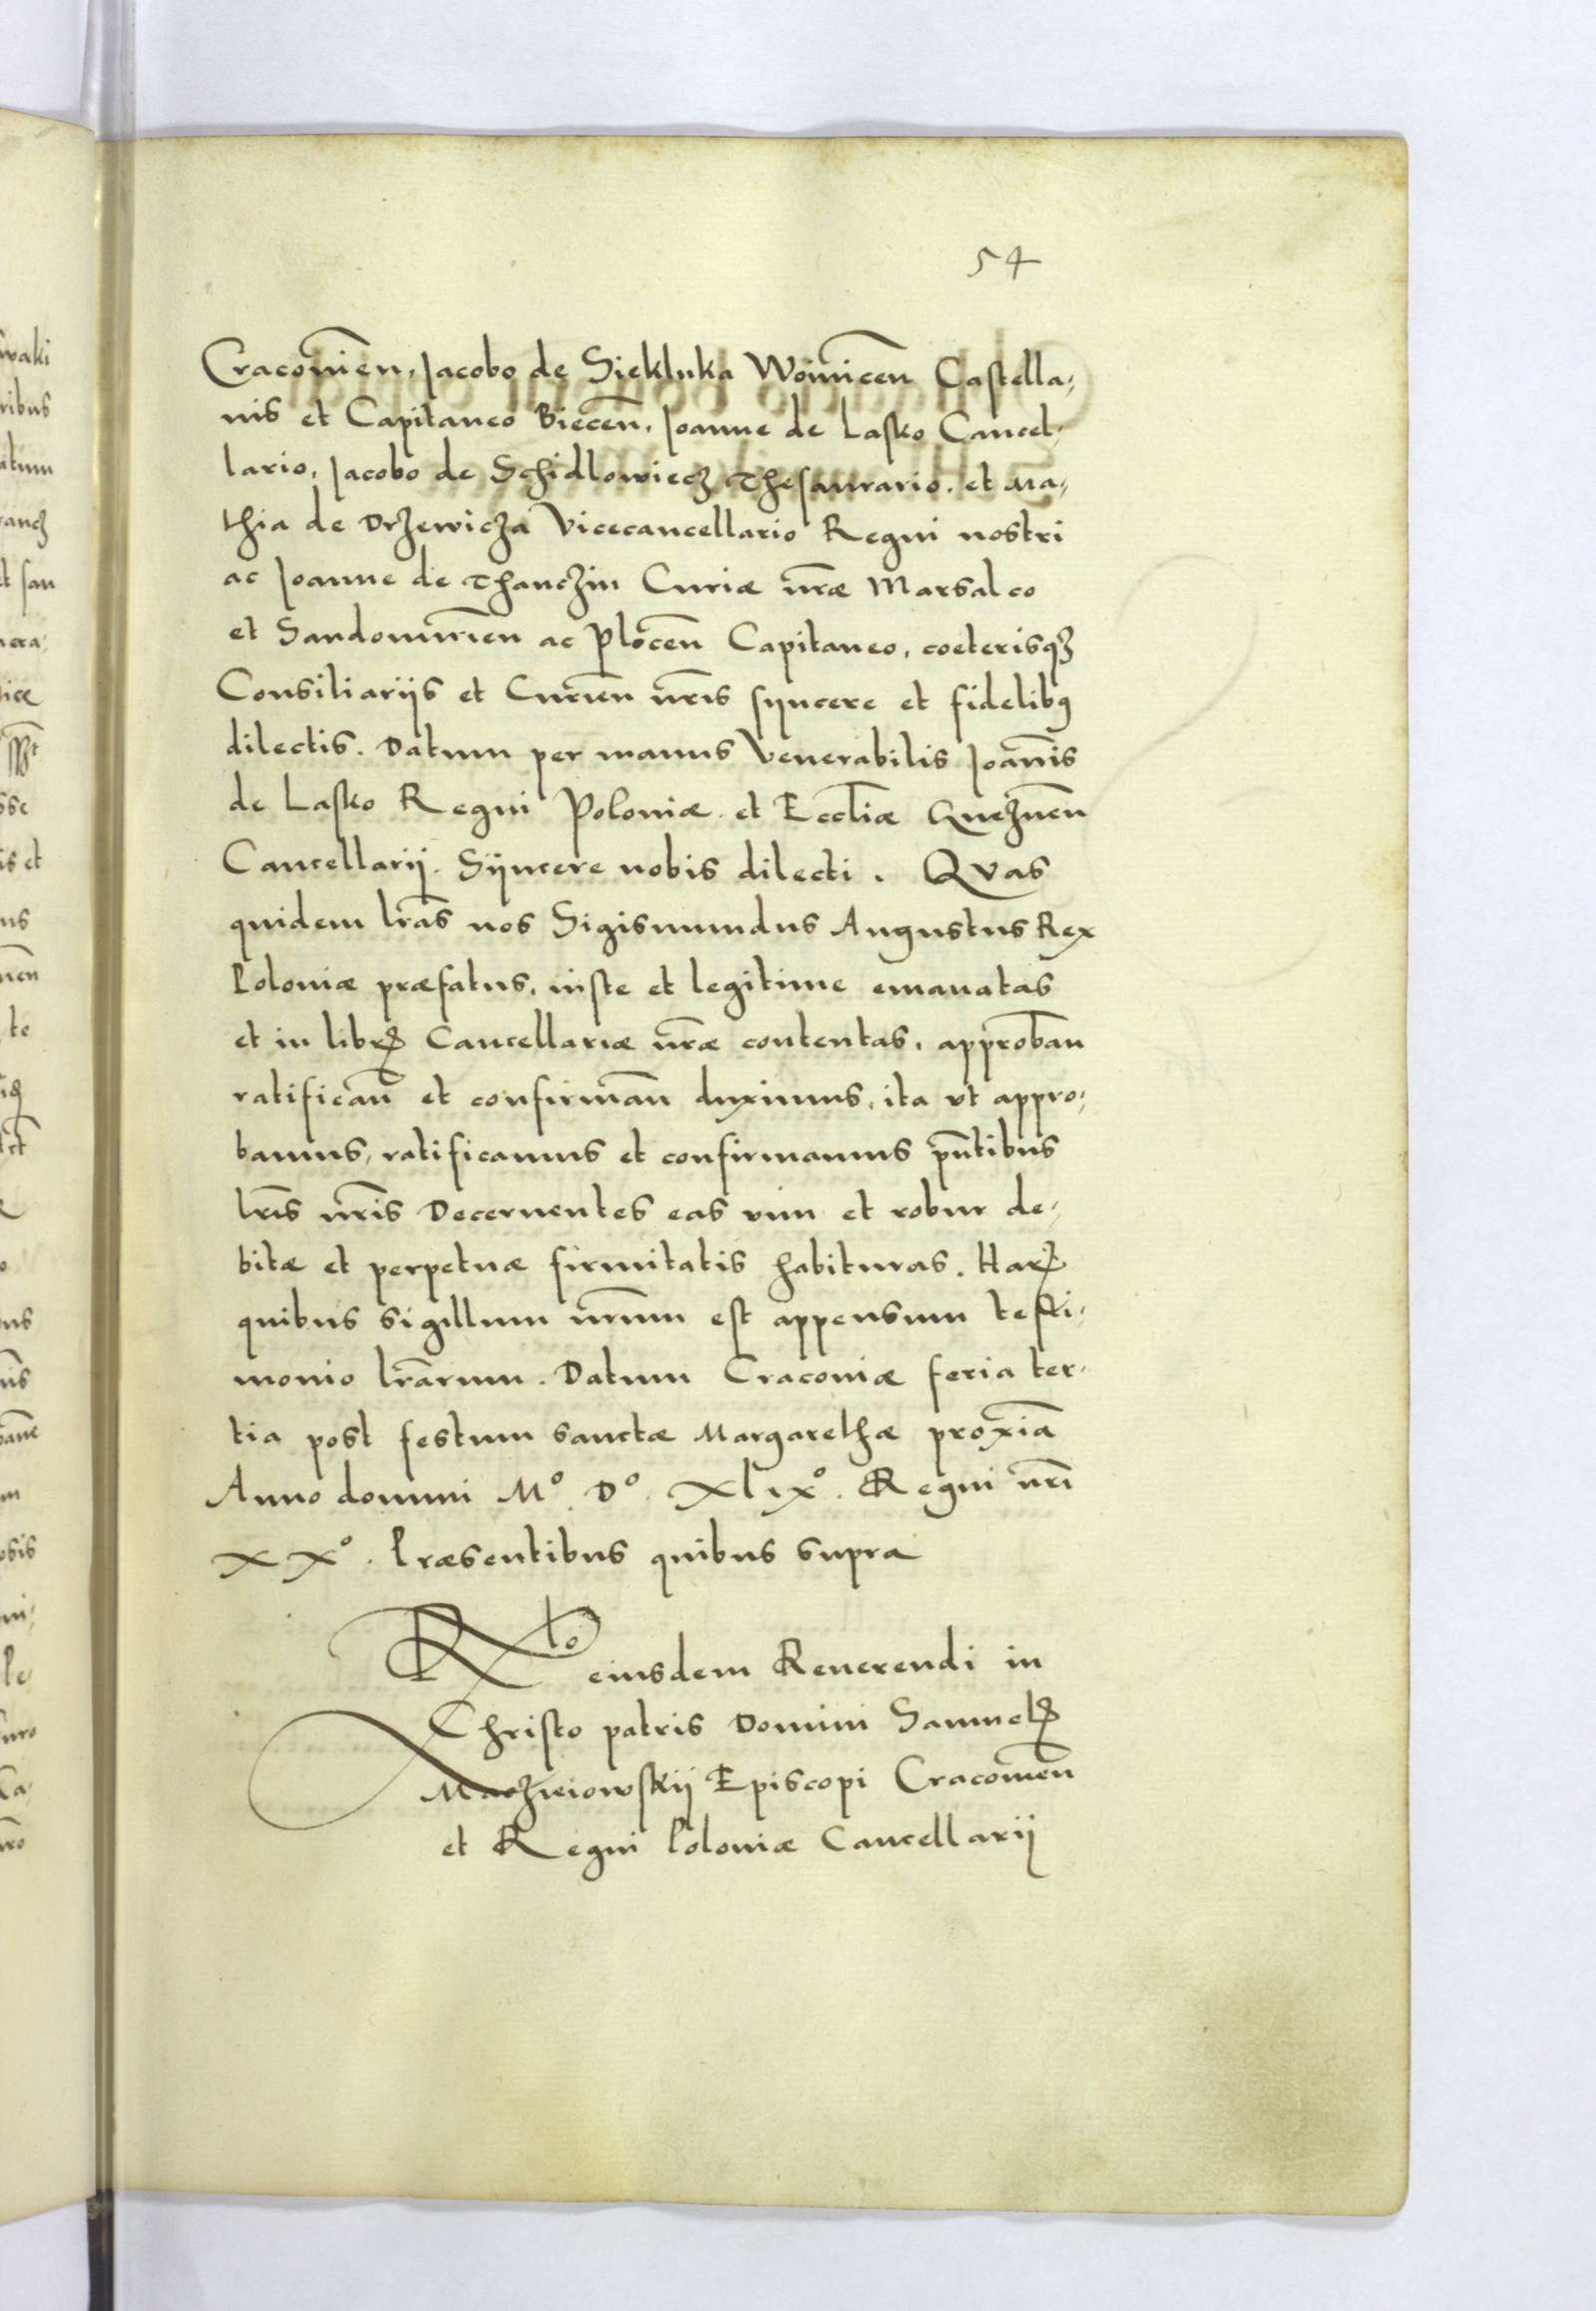 54
Cracouien̄, Jacobo de Siekluka Woiniceñ Castella⸗
nis et Capitaneo Bieceñ, Joanne de Lasko Cancel⸗
lario, Jacobo de Schidlowiecz Thesaurario. et Ma⸗
thia de Drzewicza Vicecancellario Regni nostri
ac Joanne de Thanczin Curiæ nr̄æ Marsalco
et Sandomirieñ ac Ploceñ Capitaneo, coeterisqꝫ
Consiliariis et Curieñ nr̄is syncere et fidelibꝰ
dilectis. Datum per manus Venerabilis Joan̄is
de Lasko Regni Poloniæ et Eccl̄iæ Gnezneñ
Cancellarij. Sÿncere nobis dilecti. Qvas
quidem lr̄as nos Sigismundus Augustus Rex
Poloniæ præfatus, iuste et legitime emanatas
et in librꝭ Cancellariæ nr̄æ contentas, approban̄
ratifican̄ et confirman̄ duximus, ita vt appro⸗
bamus, ratificamus et confirmamus pn̄tibus
lr̄is nr̄is Decernentes eas vim et robur de⸗
bitæ et perpetuæ firmitatis habituras. Harꝝ
quibus sigillum nr̄um est appensum testi⸗
monio lr̄arum. Datum Cracoviæ feria ter⸗
tia post festum sanctæ Margarethæ proxīa
Anno domini M°. D°. xlix°. Regni nr̄i
xx°. Præsentibus quibus supra
Rlo eiusdem Reuerendi in
Christo patris Domini Samuelꝭ
Maczieiowskij Episcopi Cracouieñ
et Regni Poloniæ Cancellarij